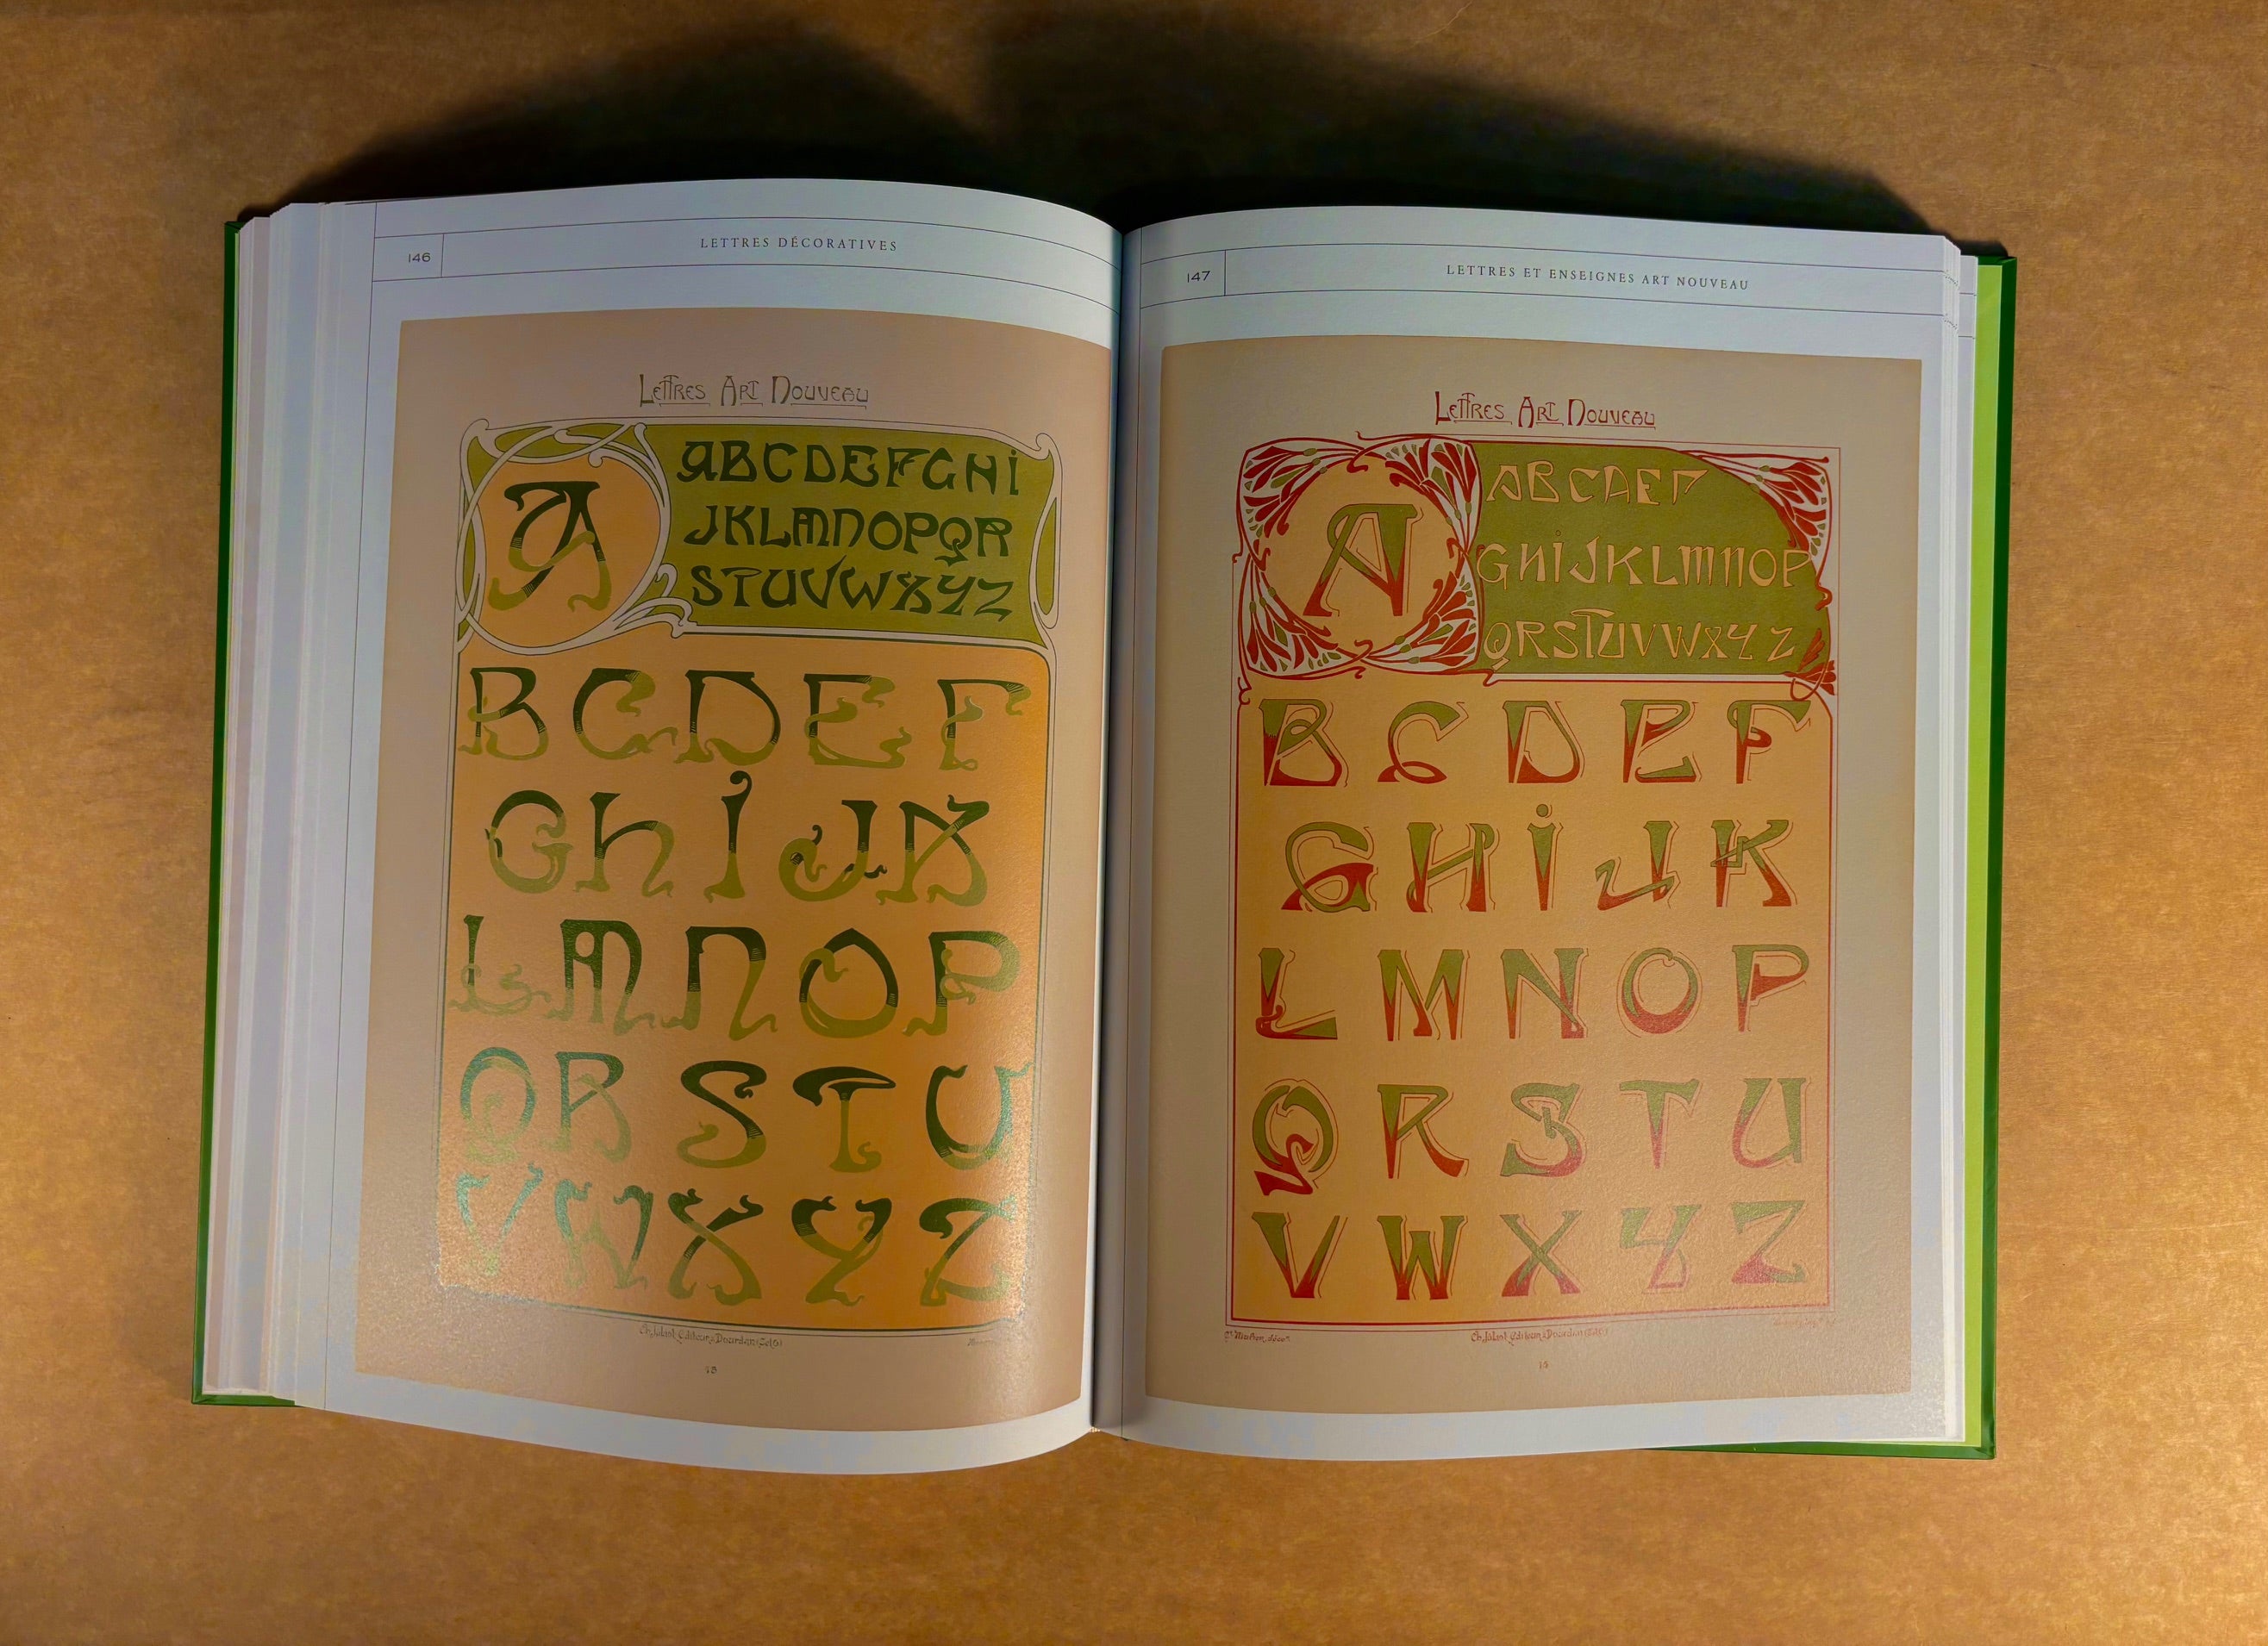 146
LETTRES DÉCORATIVES
Lettres Art Nouveau
A
ABCDEFGHI
JKLMNOPQR
STUVWXYZ
BCDEF
GHIJK
LMNOP
QRSTU
VWXYZ
Editeur à Dourdan (S et O)
15
147
LETTRES ET ENSEIGNES ART NOUVEAU
Lettres Art Nouveau
A
ABCDEF
GHIJKLMNOP
QRSTUVWXYZ
BCDEF
GHIJK
LMNOP
QRSTU
VWXYZ
Editeur à Dourdan (S et O)
15